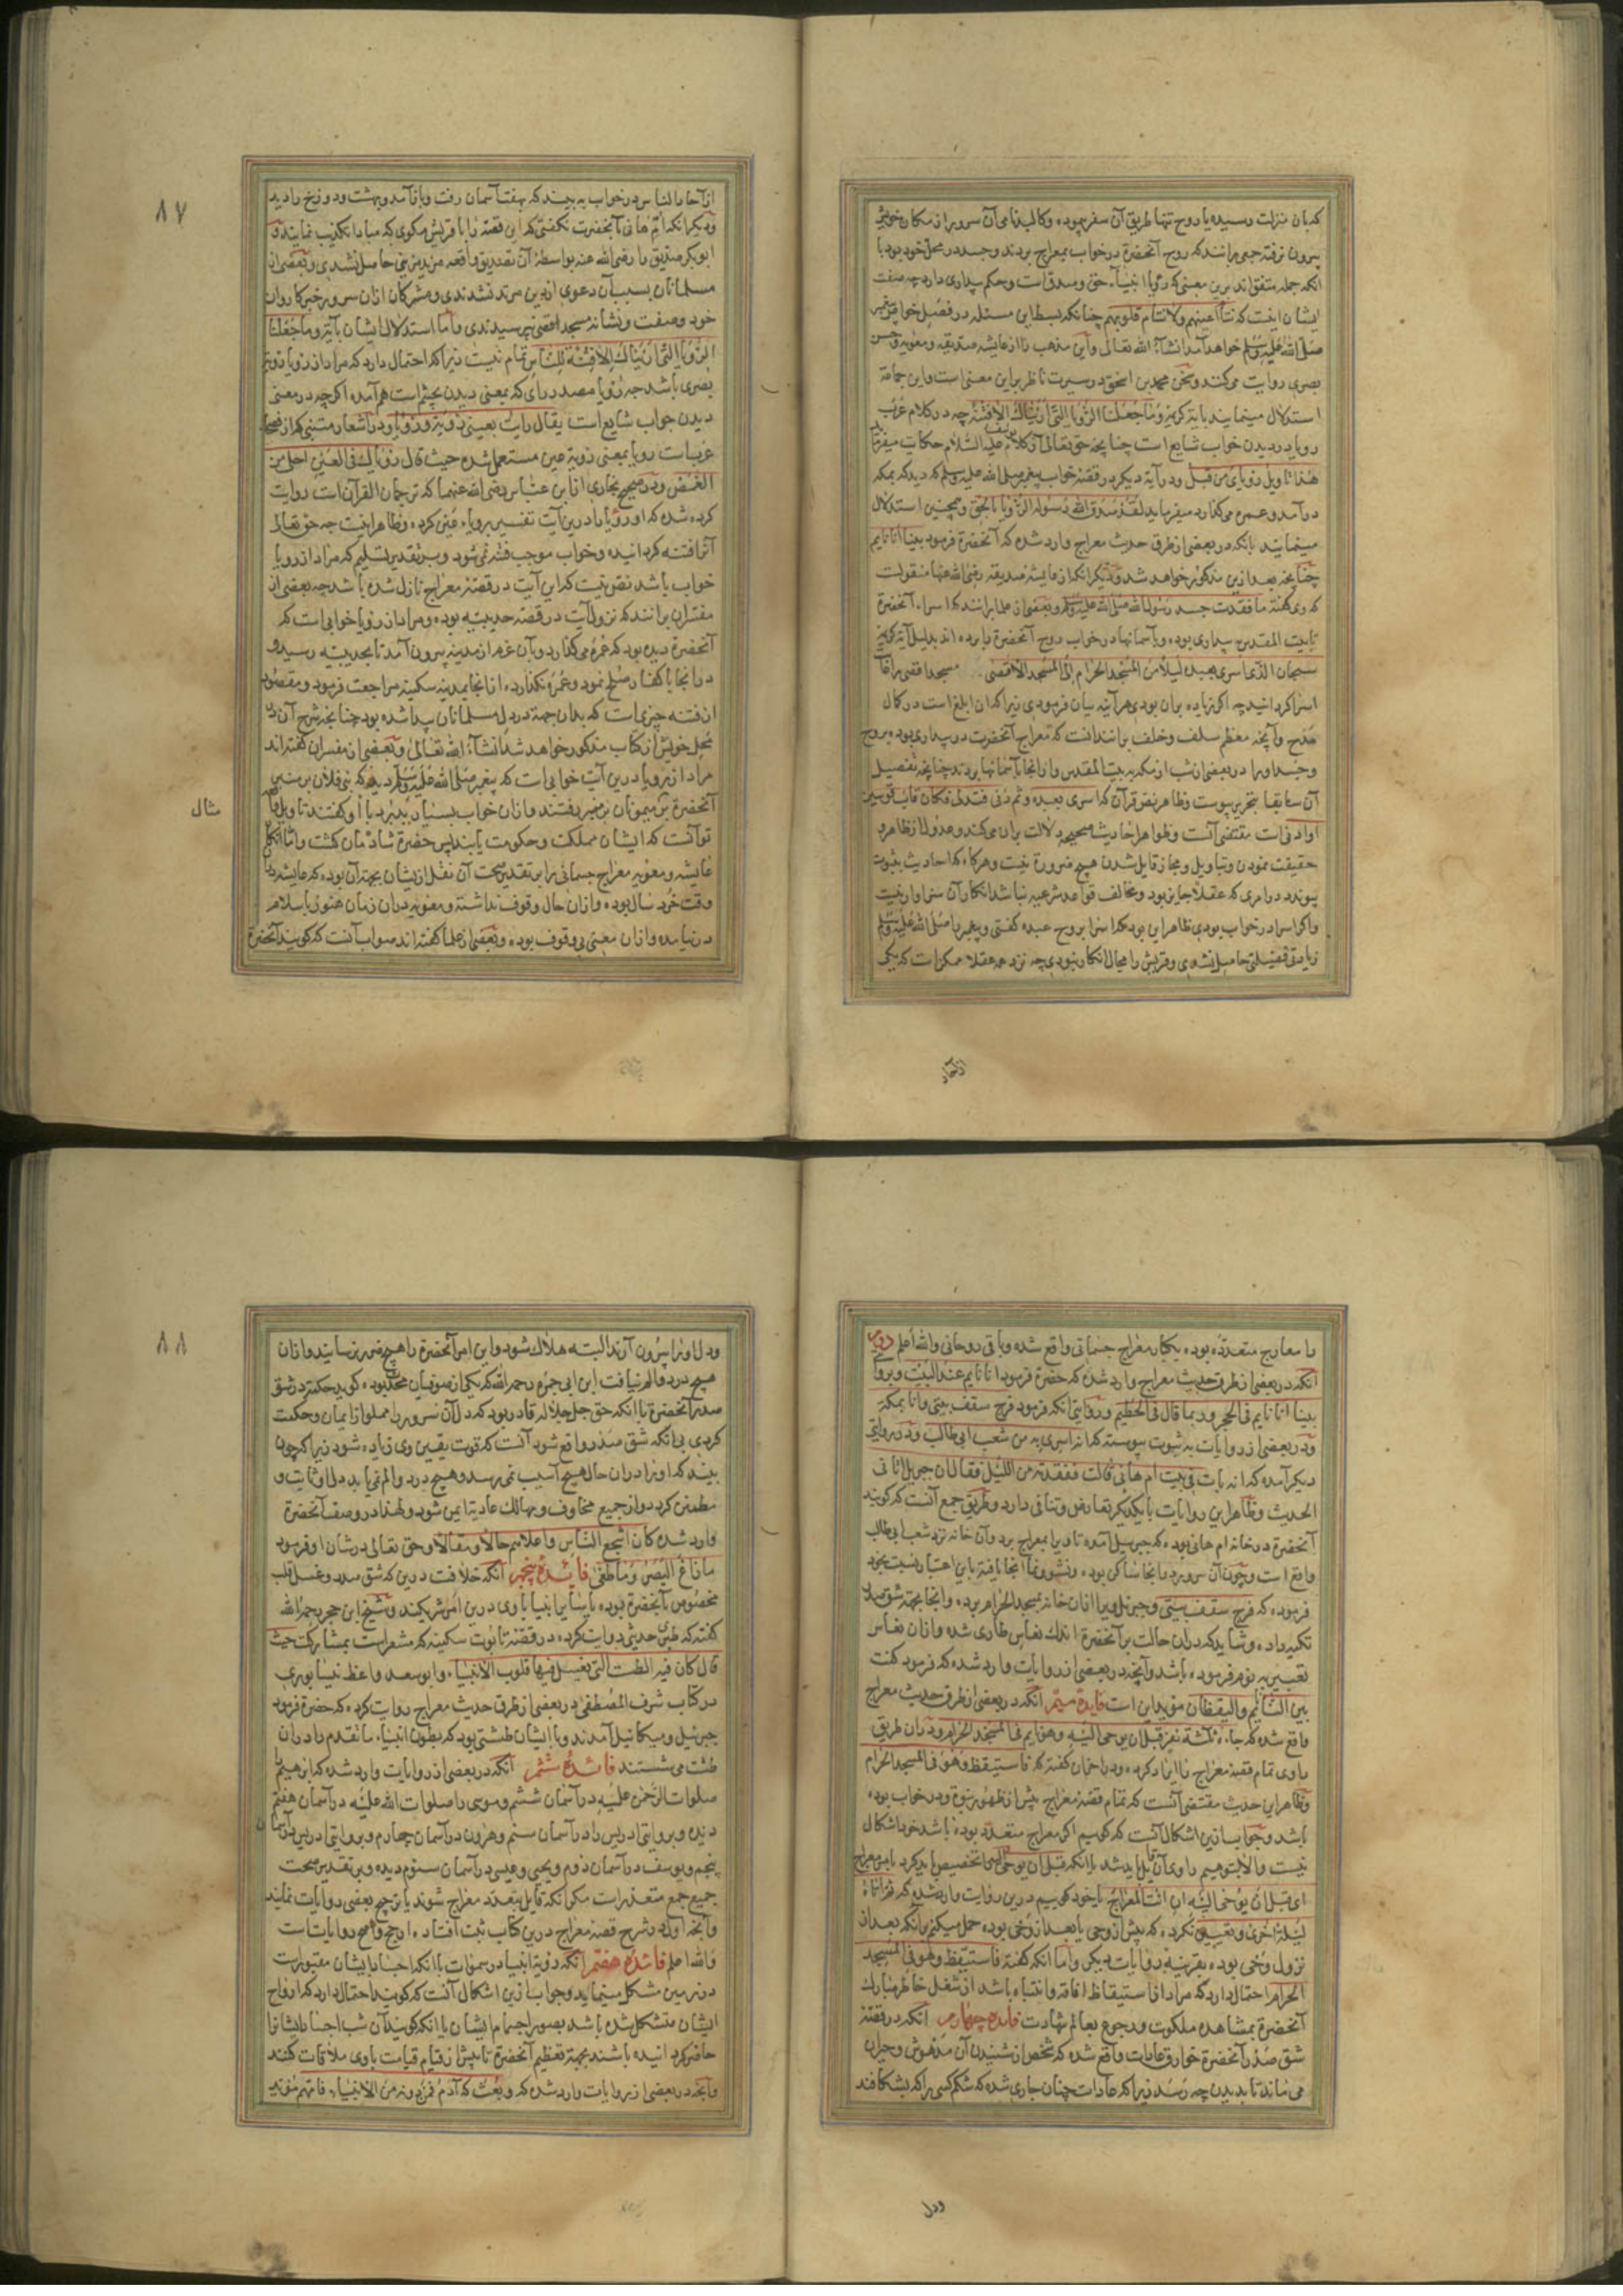 که بان منزلت رسیده یا روح تنها طریق آن سفر پیموده و کالبد نامی آن سرور از مکان خویش
بیرون نرفته جمعی برانند که روح آنحضرة در خواب بمعراج بردند و جسد در محل خود بود با
انکه جمله متفق اند برین معنی که رؤیا انبیآء حق و صدقست و حکم بیداری دارد چه صفت
ایشان اینست که تنام اعینهم ولا تنام قلوبهم چنانکه بسط این مسئله در فصل خواب پیغمبر
صلی الله علیه وسلم خواهد آمد انشآء الله تعالی و این مذهب را از عایشه صدیقه و معویه و حسن
بصری روایت می کنند و محمد بن اسحق در سیرت ناظر براین معنی است و این جماعة
استدلال مینمایند بایة کریمه وما جعلنا الرؤیا التی اریناک الا فتنة چه در کلام عرب
رویا در دیدن خواب شایع است چنانچه حق تعالی از کلام یوسف علیه السلام حکایت میفرماید
هذا تاویل رؤیای من قبل و در آیة دیگر در قصه خواب پیغمبر صلی الله علیه وسلم که دید که بمکه
در آمد و عمره می گذارد میفرماید لقد صدق الله رسوله الرؤیا بالحق و همچنین استدلال
مینمایند بانکه در بعضی از طرق حدیث معراج وارد شده که آنحضرة فرمود بینا انا نایم
چنانچه بعد ازین مذکور خواهد شد و دیگر انکه از عایشه صدیقه رضی الله عنها منقولست
که وی گفته ما فقدت جسد رسول الله صلی الله علیه وسلم و بعضی از علما برانند که اسراء آنحضرة
تا بیت المقدس بیداری بوده و بآسمانها در خواب روح آنحضرة را برده اند بدلیل آیة کریمه
سبحان الذی اسری بعبده لیلا من المسجد الحرام الی المسجد الاقصی مسجد اقصی را غایت
اسرا گردانید چه اگر زیاده بران بودی هرآینه بیان فرمودی زیرا که ان ابلغ است در کمال
مدح و آنچه معظم سلف و خلف برانند انست که معراج آنحضرت در بیداری بوده بروح
و جسد او را در بعضی از شب از مکه به بیت المقدس و ازانجا بآسمانها بردند چنانچه تفصیل
آن سابقا بتحریر پیوست و ظاهر نص قرآن که اسری بعبده و ثم دنی فتدلی فکان قاب قوسین
او ادنی است مقتضی آنست و ظواهر احادیث صحیحه دلالت بران می کند و عدول از ظاهر و
حقیقت نمودن و بتاویل و مجاز قایل شدن هیچ ضرورة نیست و هرگاه که احادیث بثبوت
پیوندد در امری که عقلا جایز بود و مخالف قواعد شرعیه نباشد انکار آن سزاوار نیست
و اگر اسرا در خواب بودی ظاهر این بود که اسرا بروح عبده گفتی و پیغمبر را صلی الله علیه وسلم
زیادتی فضیلتی حاصل نشدی و قریش را مجال انکار نبودی چه نزد عقلا ممکن است که یکی
از آحاد
۸۷
از آحاد الناس در خواب به بیند که بهفت آسمان رفت و باز آمد و بهشت و دوزخ را دید
و دیگر انکه ام هانی با آنحضرت نگفتی که این قصه را با قریش مگوی که مبادا تکذیب نمایند و
ابوبکر صدیق را رضی الله عنه بواسطۀ آن تصدیق واقعه مزید مزیتی حاصل نشدی و بعضی از
مسلمانان بسبب آن دعوی از دین مرتد نشدندی و مشرکان ازان سرور خبر کاروان
خود و صفت و نشانه مسجد اقصی نپرسیدندی و اما استدلال ایشان بآیة وما جعلنا
الرؤیا التی اریناک الا فتنة للناس تمام نیست زیرا که احتمال دارد که مراد از رؤیا رؤیة
بصری باشد چه رؤیا مصدر رای که بمعنی دیدن بچشم است هم آمده اگرچه در معنی
دیدن خواب شایع است یقال رایت بعینی رؤیة و رؤیا و در اشعار متنبی که از فصحاء
عربست رویا بمعنی رویة عین مستعمل شده حیث قال رؤیاک فی العین احلی من
الغمض و در صحیح بخاری از ابن عباس رضی الله عنهما که ترجمان القرآن است روایت
کرده شده که او رؤیا را درین آیت تفسیر برویاء عین کرده و ظاهر اینست چه حق تعالی
آنرا فتنه گردانیده و خواب موجب فتنه نمی شود و بر تقدیر تسلیم که مراد از رویا
خواب باشد نص نیست که این آیت در قصه معراج نازل شده باشد چه بعضی از
مفسران برانند که نزول آیت در قصه حدیبیه بوده و مراد از رؤیا خوابی است که
آنحضرة دیده بود که عمره می گذارد و بآن عزم از مدینه بیرون آمد تا بحدیبیه رسید و
در انجا با کفار صلح نمود و عمره نگذارده ازانجا بمدینه سکینه مراجعت فرمود و مقصود
از فتنه چیزی است که بدان جهة در دل مسلمانان پیدا شده بود چنانچه شرح آن در
محل خویش از کتاب مذکور خواهد شد انشآء الله تعالی و بعضی از مفسران گفته اند
مراد از رویا درین آیت خوابی است که پیغمبر صلی الله علیه وسلم دید که بنی فلان بر منبر
آنحضرة بر میمونان بر میرفتند و ازان خواب بسیار با او گفتند تاویل
تو آنست که ایشان مملکت و حکومت یابند پس حضرة شادمان گشت و اما انکار
عایشه و معویه معراج جسمانی را بر تقدیر صحت آن نقل از یشان بجهة آن بوده که عایشه در
وقت خرد سال بوده و ازان حال وقوف نداشته و معویه دران زمان هنوز باسلام
در نیامده و ازان معنی بی وقوف بوده و بعضی از علما گفته اند صواب آنست که گویند آنحضرة
مثال
را معارج متعدده بوده یکبار معراج جسمانی واقع شده و باقی روحانی والله اعلم
آنکه در بعضی از طرق حدیث معراج وارد شده که حضرة فرمود انا نایم عند البیت و بروایتی
بینا انا نایم فی الحجر و ربما قال فی الحطیم و روایتی انکه فرمود فرج سقف بیتی و انا بمکة
و در بعضی از روایات به ثبوت پیوسته که انه اسری به من شعب ابی طالب و در روایتی
دیگر آمده که انه بات فی بیت ام هانی قالت ففقدته من اللیل فقال ان جبریل اتانی
الحدیث و ظاهر این روایات با یکدیگر تعارض و تنافی دارد و طریق جمع آنست که گویند
آنحضرة در خانه ام هانی بوده که جبرییل آمده تا ویرا بمعراج برد و آن خانه نزد شعب ابی طالب
واقع است و چون آن سرور در انجا ساکن بوده و نشو و نما انجا یافته باین اعتبار نسبت بخود
فرموده که فرج سقف بیتی و جبرئیل ویرا ازان خانه بمسجد الحرام برده و انجا بجهة شق صدر
تکیه داده و شاید که دران حالت بر آنحضرة اندک نعاس طاری شده و ازان نعاس
تعبیر به نوم فرموده باشد و آنچه در بعضی از روایات وارد شده که فرمود کنت
بین النایم والیقظان مؤید این است فایدۀ سیم انکه در بعضی از طرق حدیث معراج
واقع شده که جاءه ثلثة نفر قبل ان یوحی الیه وهو نایم فی المسجد الحرام و دران طریق
راوی تمام قصه معراج را ایراد کرده و در اخران گفته که فاستیقظ وهو فی المسجد الحرام
و ظاهر این حدیث مقتضی آنست که تمام قصه معراج پیش از ظهور نبوة و در خواب بوده
باشد و جواب ازین اشکال آنست که گوییم اگر معراج متعدد بوده باشد خود اشکال
نیست و الا بتوهیم راوی قایل باید شد یا انکه قبل ان یوحی الیه را تخصیص باید کرد بامر معراج
ای قبل ان یوحی الیه ان ائت المعراج یا خود گوییم درین روایت وارد شده که ثم اتاه
لیلة اخری و تعیین نکرده که پیش از وحی یا بعد از وحی بوده حمل میکنیم بانکه بعد از
نزول وحی بوده بقرینه روایات دیگر و اما انکه گفته فاستیقظ وهو فی المسجد
الحرام احتمال دارد که مراد از استیقاظ افاقه و انتباه باشد از شغل خاطر مبارک
آنحضرة بمشاهده ملکوت و رجوع بعالم شهادت فایده چهارم انکه در قصه
شق صدر آنحضرة خوارق عادات واقع شده که شخص از شنیدن آن مدهوش و حیران
می ماند تا بدیدن چه رسد زیرا که عادات چنان جاری شده که شکم کسی را که بشکافند
ودل
۸۸
ودل او را بیرون آرند البته هلاک شود و این امر آنحضرة را هیچ ضرر نرسانید و ازان
هیچ درد و الم نیافت ابن ابی جمره رحمه الله که یکی از صوفیان محدث بوده گوید حکمة در شق
صدر آنحضرة با انکه حق جل جلاله قادر بود که دل آن سرور را مملو از ایمان و حکمت
کردی بی انکه شق صدر واقع شود آنست که قوت یقین وی زیاده شود زیرا که چون
بیند که او را دران حال هیچ آسیب نمی رسد و هیچ درد و الم نمی یابد دل او ثابت و
مطمئن گردد و از جمیع مخاوف و مهالک عادیة ایمن شود و لهذا در وصف آنحضرة
وارد شده کان اشجع الناس و اعلاهم حالا و مقالا و حق تعالی در شان او فرمود
ما زاغ البصر وما طغی فایدۀ پنجم آنکه خلافست درین که شق صدر و غسل قلب
مخصوص بآنحضرة بوده یا سایر انبیا با وی درین امر شریکند و شیخ ابن حجر رحمه الله
گفته که طبری حدیثی روایت کرده در قصه تابوت سکینه که مشعر است بمشارکت حیث
قال کان فیه الطست التی یغسل فیها قلوب الانبیاء و ابو سعد واعظ نیسابوری
در کتاب شرف المصطفی در بعضی از طرق حدیث معراج روایت کرده که حضرة فرمود
جبرئیل و میکائیل آمدند و با ایشان طشتی بود که بطون انبیاء ما تقدم را دران
طشت می شستند فایدۀ ششم آنکه در بعضی از روایات وارد شده که ابرهیم را
صلوات الرحمن علیه در آسمان ششم و موسی را صلوات الله علیه در آسمان هفتم
دیده و بروایتی ادریس را در آسمان سیم و هرون در آسمان چهارم و بروایتی ادریس در آسمان
پنجم و یوسف در آسمان دوم و یحیی و عیسی در آسمان سیوم دیده و بر تقدیر صحت
جمیع جمع متعذر است مگر انکه قایل بتعدد معراج شوند یا ترجیح بعضی روایات نمایند
و آنچه اولا در شرح قصه معراج درین کتاب ثبت افتاده ارجح و اصح روایات است
والله اعلم فایده هفتم انکه رویة انبیا در سموات با انکه اجساد ایشان مقبورست
در زمین مشکل مینماید و جواب ازین اشکال آنست که گویند احتمال دارد که ارواح
ایشان متشکل شده باشد بصور اجسام ایشان یا انکه گویند آن شب اجساد ایشانرا
حاضر گردانیده باشند بجهة تعظیم آنحضرة تا پیش از قیام قیامت با وی ملاقات کنند
و آنچه در بعضی از روایات وارد شده که و بعث له آدم فمن دونه من الانبیاء فامهم مؤید